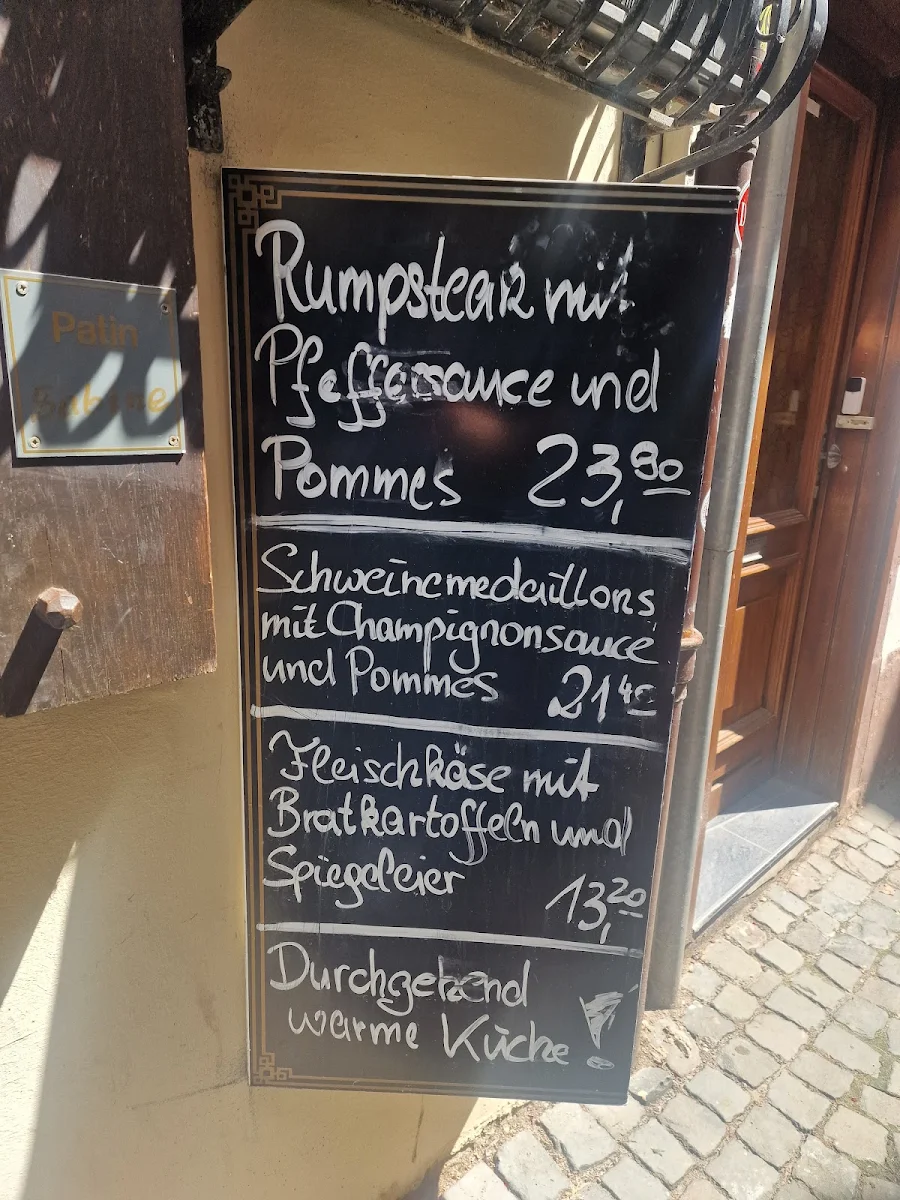 Rumpsteak mit
Pfeffersauce und
Pommes 23,90
Schweinemedaillons
mit Champignonsauce
und Pommes 21 40
Fleischkäse mit
Bratkartoffeln und
Spiegeleier 13,20
Durchgehend
warme Küche!
Patin
Sabine